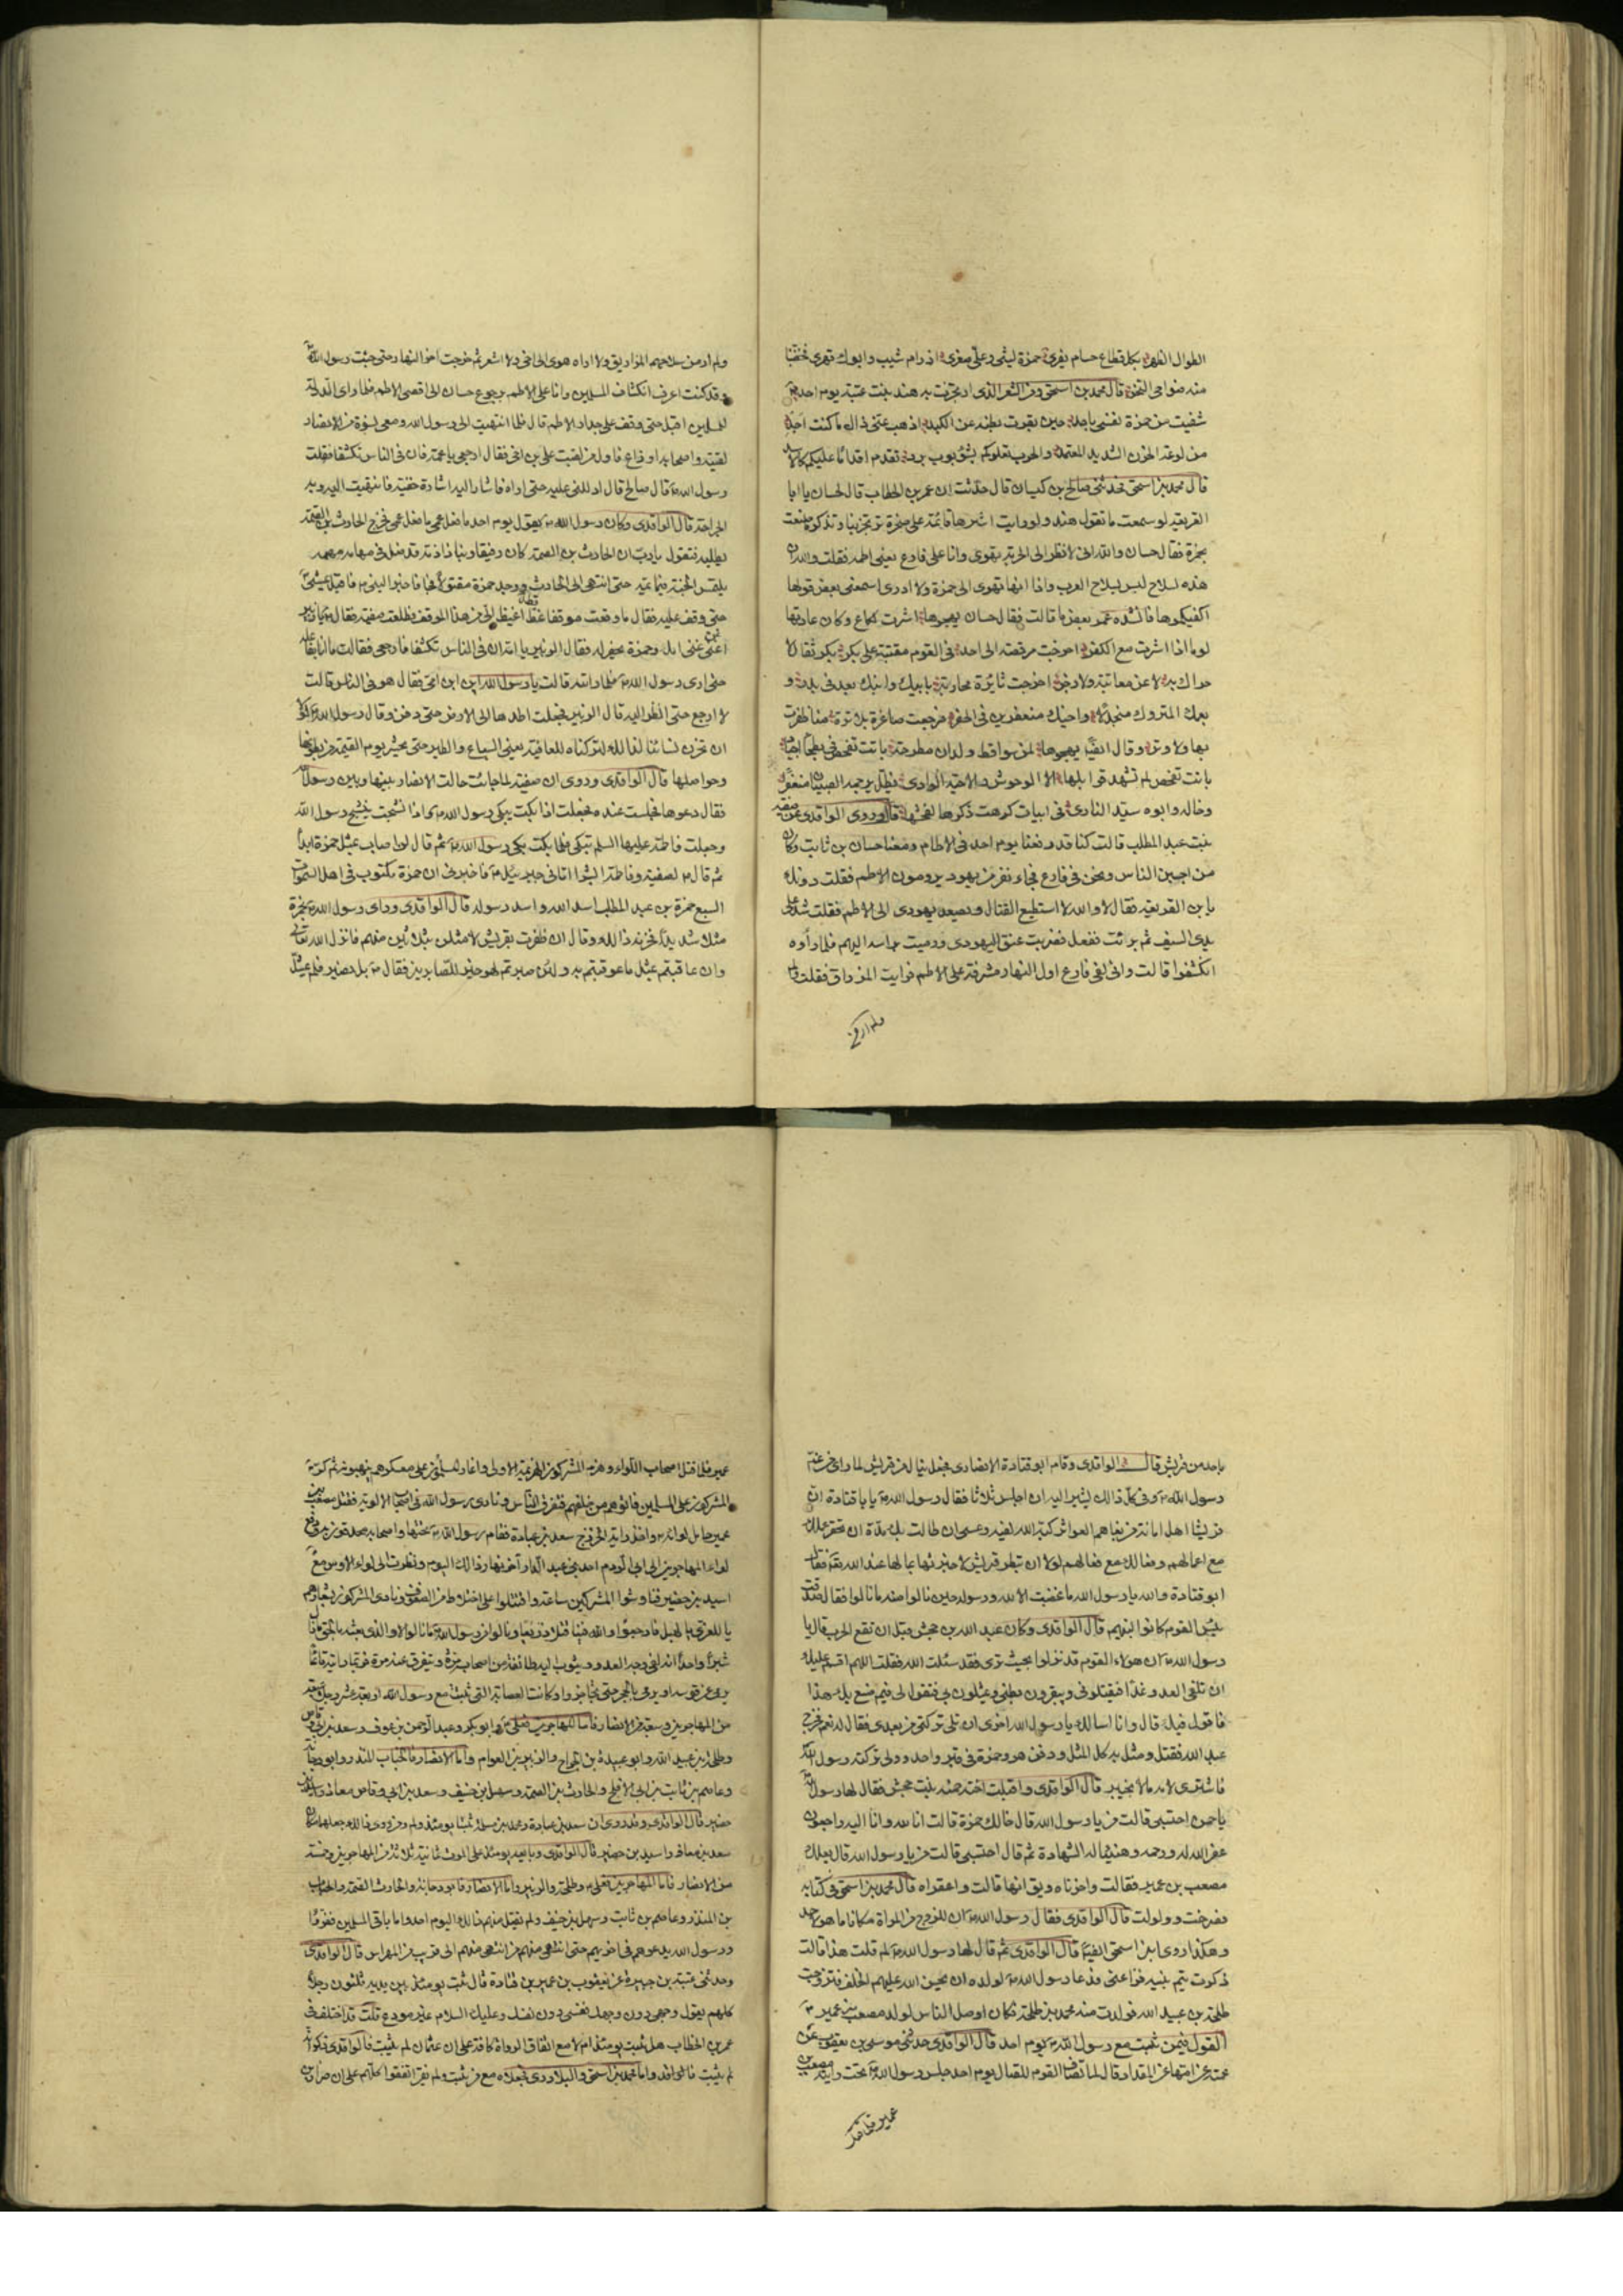 الطوال الظهر بكل قطاع حسام يفرى حمزة ليثى وعلى صقرى اذ رام شيب وابوك قهرى فخضبا
منه ضواحى النحر قال محمد بن اسحق ومن الشعر الذى ارتجزت به هند بنت عتبة يوم احد
شفيت من حمزة نفسى باحد حين بقرت بطنه عن الكبد اذهب عنى ذاك ما كنت اجد
من لوعة الحزن الشديد المعتمد والحرب تعلوكم بشؤبوب برد نقدم اقداما عليكم كالاسد
قال محمد بن اسحق فحدثنى صالح بن كيسان قال حدثت ان عمر بن الخطاب قال لحسان يا ابا
الفريعة لو سمعت ما تقول هند ولو رايت اشرها قائمة على صخرة ترتجز بنا وتذكر ما صنعت
بحمزة فقال حسان والله انى لانظر الى الحربة تهوى وانا على فارع يعنى اطمه فقلت والله ان
هذه لسلاح ليس بسلاح العرب واذا انها تهوى الى حمزة ولا ادرى اسمعنى بعض قولها
اكفيكموها فانشده عمر بعض ما قالت فقال حسان يهجوها اشرت لكاع وكان عادتها
لوما اذا اشرت مع الكفر اخرجت مرقصة الى احد فى القوم مقتبة على بكر بكر ثفال لا
حراك به لا عن معاتبة ولا زجر اخرجت ثائرة محاربة بابيك وابنك بعد فى بدر و
بعمك المتروك منجدلا واخيك منعفرين فى الجفر فرجعت صاغرة بلا ترة مما ظفرت
بها ولا وتر وقال ايضا يهجوها لمن سواقط ولدان مطرحة باتت تفحص فى بطحاء اجياد
باتت تفحص لم تشهد قوابلها الا الوحوش والا جنة الوادى يظل يرجمه الصبيان منعفرا
وخاله وابوه سيد النادى فى ابيات كرهت ذكرها لفحشها قال وروى الواقدى عن صفية
بنت عبد المطلب قالت كنا قد رفعنا يوم احد فى الاطام ومعنا حسان بن ثابت وكان
من اجبن الناس ونحن فى فارع فجاء نفر من يهود يرومون الاطم فقلت دونك
يا بن الفريعة فقال لا والله لا استطيع القتال ويصعد يهودى الى الاطم فقلت شد على
يدى السيف ثم برئت ففعل فضربت عنق اليهودى ورميت براسه اليهم فلما راوه
انكشفوا قالت وانى لفى فارع اول النهار مشرفة على الاطم فرايت المزراق فقلت
ولم ار من سلاحهم المزاريق ولا اراه هوى الى اخى ولا اشعر ثم خرجت اخر النهار حتى جئت رسول الله
وقد كنت اعرف انكشاف المسلمين وانا على الاطم برجوع حسان الى اقصى الاطم فلما راى الدولة
للمسلمين اقبل حتى وقف على جدار الاطم قال فلما انتهيت الى رسول الله ومعى نسوة من الانصار
لقيته واصحابه اوزاع فاول من لقيت على بن اخى فقال ارجعى يا عمة فان فى الناس تكشفا فقلت
رسول الله قال صالح قال ادللنى عليه حتى اراه فاشار اليه اشارة خفية فانتهيت اليه وبه
الجراحة قال الواقدى وكان رسول الله يقول يوم احد ما فعل عمى ما فعل عمى فخرج الحارث بن الصمة
يطلبه فيقول يا رب ان الحارث بن الصمة كان رفيقا وبنا ذا ذمة قد ضل فى مهامه مهمة
يلتمس الجنة فيما ثمة حتى انتهى الى الحارث ووجد حمزة مقتولا فجاء فاخبر النبى فاقبل يمشى
حتى وقف عليه فقال ما وقفت موقفا قط اغيظ الى من هذا الموقف فطلعت صفية فقال يا زبير
اغن عنى امك وحمزة يحفر له فقال الزبير يا امه ان فى الناس تكشفا فارجعى فقالت ما انا بفاعلة
حتى ارى رسول الله فلما راته قالت يا رسول الله اين ابن امى فقال هو فى الناس قالت
لا ارجع حتى انظر اليه قال الزبير فجعلت اطدها الى الارض حتى دفن وقال رسول الله لولا
ان تحزن نسائنا لذلك لتركناه للعافية يعنى السباع والطير حتى يحشر يوم القيمة من بطونها
وحواصلها قال الواقدى وروى ان صفية لما جائت حالت الانصار بينها وبين رسول الله
فقال دعوها فجلست عنده فجعلت اذا بكت يبكى رسول الله واذا نشجت ينشج رسول الله
وجعلت فاطمة عليها السلم تبكى فلما بكت بكى رسول الله ثم قال لن اصاب بمثل حمزة ابدا
ثم قال لصفية وفاطمة ابشرا اتانى جبرئيل فاخبرنى ان حمزة مكتوب فى اهل السموات
السبع حمزة بن عبد المطلب اسد الله واسد رسوله قال الواقدى وراى رسول الله بحمزة
مثلا شديدا فحزنه ذلك وقال ان ظفرت بقريش لامثلن بثلاثين منهم فانزل الله تعالى
وان عاقبتم بمثل ما عوقبتم به ولئن صبرتم لهو خير للصابرين فقال بل نصبر فلم يمثل
ولم ار من
باحد من قريش قال الواقدى وقام ابو قتادة الانصارى فجعل ينال من قريش لما راى من غم
رسول الله وفى كل ذلك يشير اليه ان اجلس ثلاثا فقال رسول الله يا با قتادة ان
قريشا اهل امانة من بغاهم العواثر كبه الله لفيه وعسى ان طالت بك مدة ان تحقر عملك
مع اعمالهم وفعالك مع فعالهم لولا ان تبطر قريش لاخبرتها بما لها عند الله تعالى فقال
ابو قتادة والله يا رسول الله ما غضبت الا لله ورسوله حين نالوا منه ما نالوا فقال صدقت
بئس القوم كانوا لنبيهم قال الواقدى وكان عبد الله بن جحش قبل ان تقع الحرب قال يا
رسول الله ان هؤلاء القوم قد نزلوا بحيث ترى فقد سئلت الله فقلت اللهم اقسم عليك
ان نلقى العدو غدا فيقتلونى ويبقرون بطنى ويمثلون بى فتقول لى فيم صنع بك هذا
فاقول فيك قال وانا اسالك يا رسول الله اخرى ان تلى تركتى من بعدى فقال له نعم فخرج
عبد الله فقتل ومثل به كل المثل ودفن هو وحمزة فى قبر واحد وولى تركته رسول الله
فاشترى لامه مالا بخيبر قال الواقدى واقبلت اخته حمنة بنت جحش فقال لها رسول الله
يا حمن احتسبى قالت من يا رسول الله قال خالك حمزة قالت انا لله وانا اليه راجعون
غفر الله له ورحمه وهنيئا له الشهادة ثم قال احتسبى قالت من يا رسول الله قال بعلك
مصعب بن عمير فقالت واحزناه ويق انها قالت واعقراه قال محمد بن اسحق فى كتابه
فصرخت وولولت قال الواقدى فقال رسول الله ان للزوج من المراة مكانا ما هو لاحد
وهكذا روى ابن اسحق ايضا قال الواقدى ثم قال لها رسول الله لم قلت هذا قالت
ذكرت يتم بنيه فراعنى فدعا رسول الله لولده ان يحسن الله عليهم الخلف فتزوجت
طلحة بن عبيد الله فولدت منه محمد بن طلحة فكان اوصل الناس لولد مصعب بن عمير
القول فيمن ثبت مع رسول الله يوم احد قال الواقدى حدثنى موسى بن يعقوب عن
عمته عن امها عن المقداد قال لما تصاف القوم للقتال يوم احد جلس رسول الله تحت راية مصعب بن
عمير فلما قتل اصحاب اللواء وهزم المشركون الهزيمة الاولى واغار المسلمون على معسكرهم ينهبونه ثم كر
المشركون على المسلمين فاتوهم من خلفهم فتفرق الناس ونادى رسول الله فى اصحاب الالوية فقتل مصعب بن
عمير حامل لوائه واخذ راية الخزرج سعد بن عبادة فقام رسول الله تحتها واصحابه محدقون به ودفع
لواء المهاجرين الى ابى الروم احد بنى عبد الدار اخر نهار ذلك اليوم ونظرت الى لواء الاوس مع
اسيد بن حضير فناوشوا المشركين ساعة واقتتلوا على اختلاط من الصفوف ونادى المشركون بشعارهم
يا للعزى يا لهبل فاوجعوا والله فينا قتلا ذريعا ونالوا من رسول الله ما نالوا لا والذى بعثه بالحق ما زال
شبرا واحدا انه لفى وجه العدو ويثوب اليه طائفة من اصحابه مرة وتتفرق عنه مرة فربما رايته قائما
يرمى عن قوسه او يرمى بالحجر حتى تحاجزوا وكانت العصابة التى ثبتت مع رسول الله اربعة عشر رجلا سبعة
من المهاجرين وسبعة من الانصار فاما المهاجرون فعلى وابو بكر وعبد الرحمن بن عوف وسعد بن ابى وقاص
وطلحة بن عبيد الله وابو عبيدة بن الجراح والزبير بن العوام واما الانصار فالحباب بن المنذر وابو دجانة
وعاصم بن ثابت بن ابى الافلح والحارث بن الصمة وسهل بن حنيف وسعد بن ابى وقاص معاذ واسيد بن
حضير قال الواقدى وقد روى ان سعد بن عبادة ومحمد بن مسلمة ثبتا يومئذ ولم ومن روى ذلك جعلهما مكان
سعد بن معاذ واسيد بن حضير قال الواقدى وبايعه يومئذ على الموت ثمانية ثلاثة من المهاجرين وخمسة
من الانصار فاما المهاجرين فعلى وطلحة والزبير واما الانصار فابو دجانة والحارث بن الصمة والحباب
بن المنذر وعاصم بن ثابت وسهل بن حنيف ولم يقتل منهم ذلك اليوم احد واما باقى المسلمين ففروا
ورسول الله يدعوهم فى اخريهم حتى انتهى منهم من انتهى منهم الى قريب من المهراس قال الواقدى
وحدثنى عتبة بن جبيرة عن يعقوب بن عمير بن قتادة قال ثبت يومئذ بين يديه ثلثون رجلا
كلهم يقول وجهى دون وجهك نفسى دون نفسك وعليك السلام غير مودع قلت قد اختلف فى
عمر بن الخطاب هل ثبت يومئذ ام لا مع اتفاق الرواة كافة على ان عثمان لم يثبت فالواقدى ذكر انه
لم يثبت فالواقدى واما محمد بن اسحق والبلاذرى فجعلاه مع من ثبت ولم يفر اتفقوا كلهم على ان ضرار بن
عمير فلما قتل